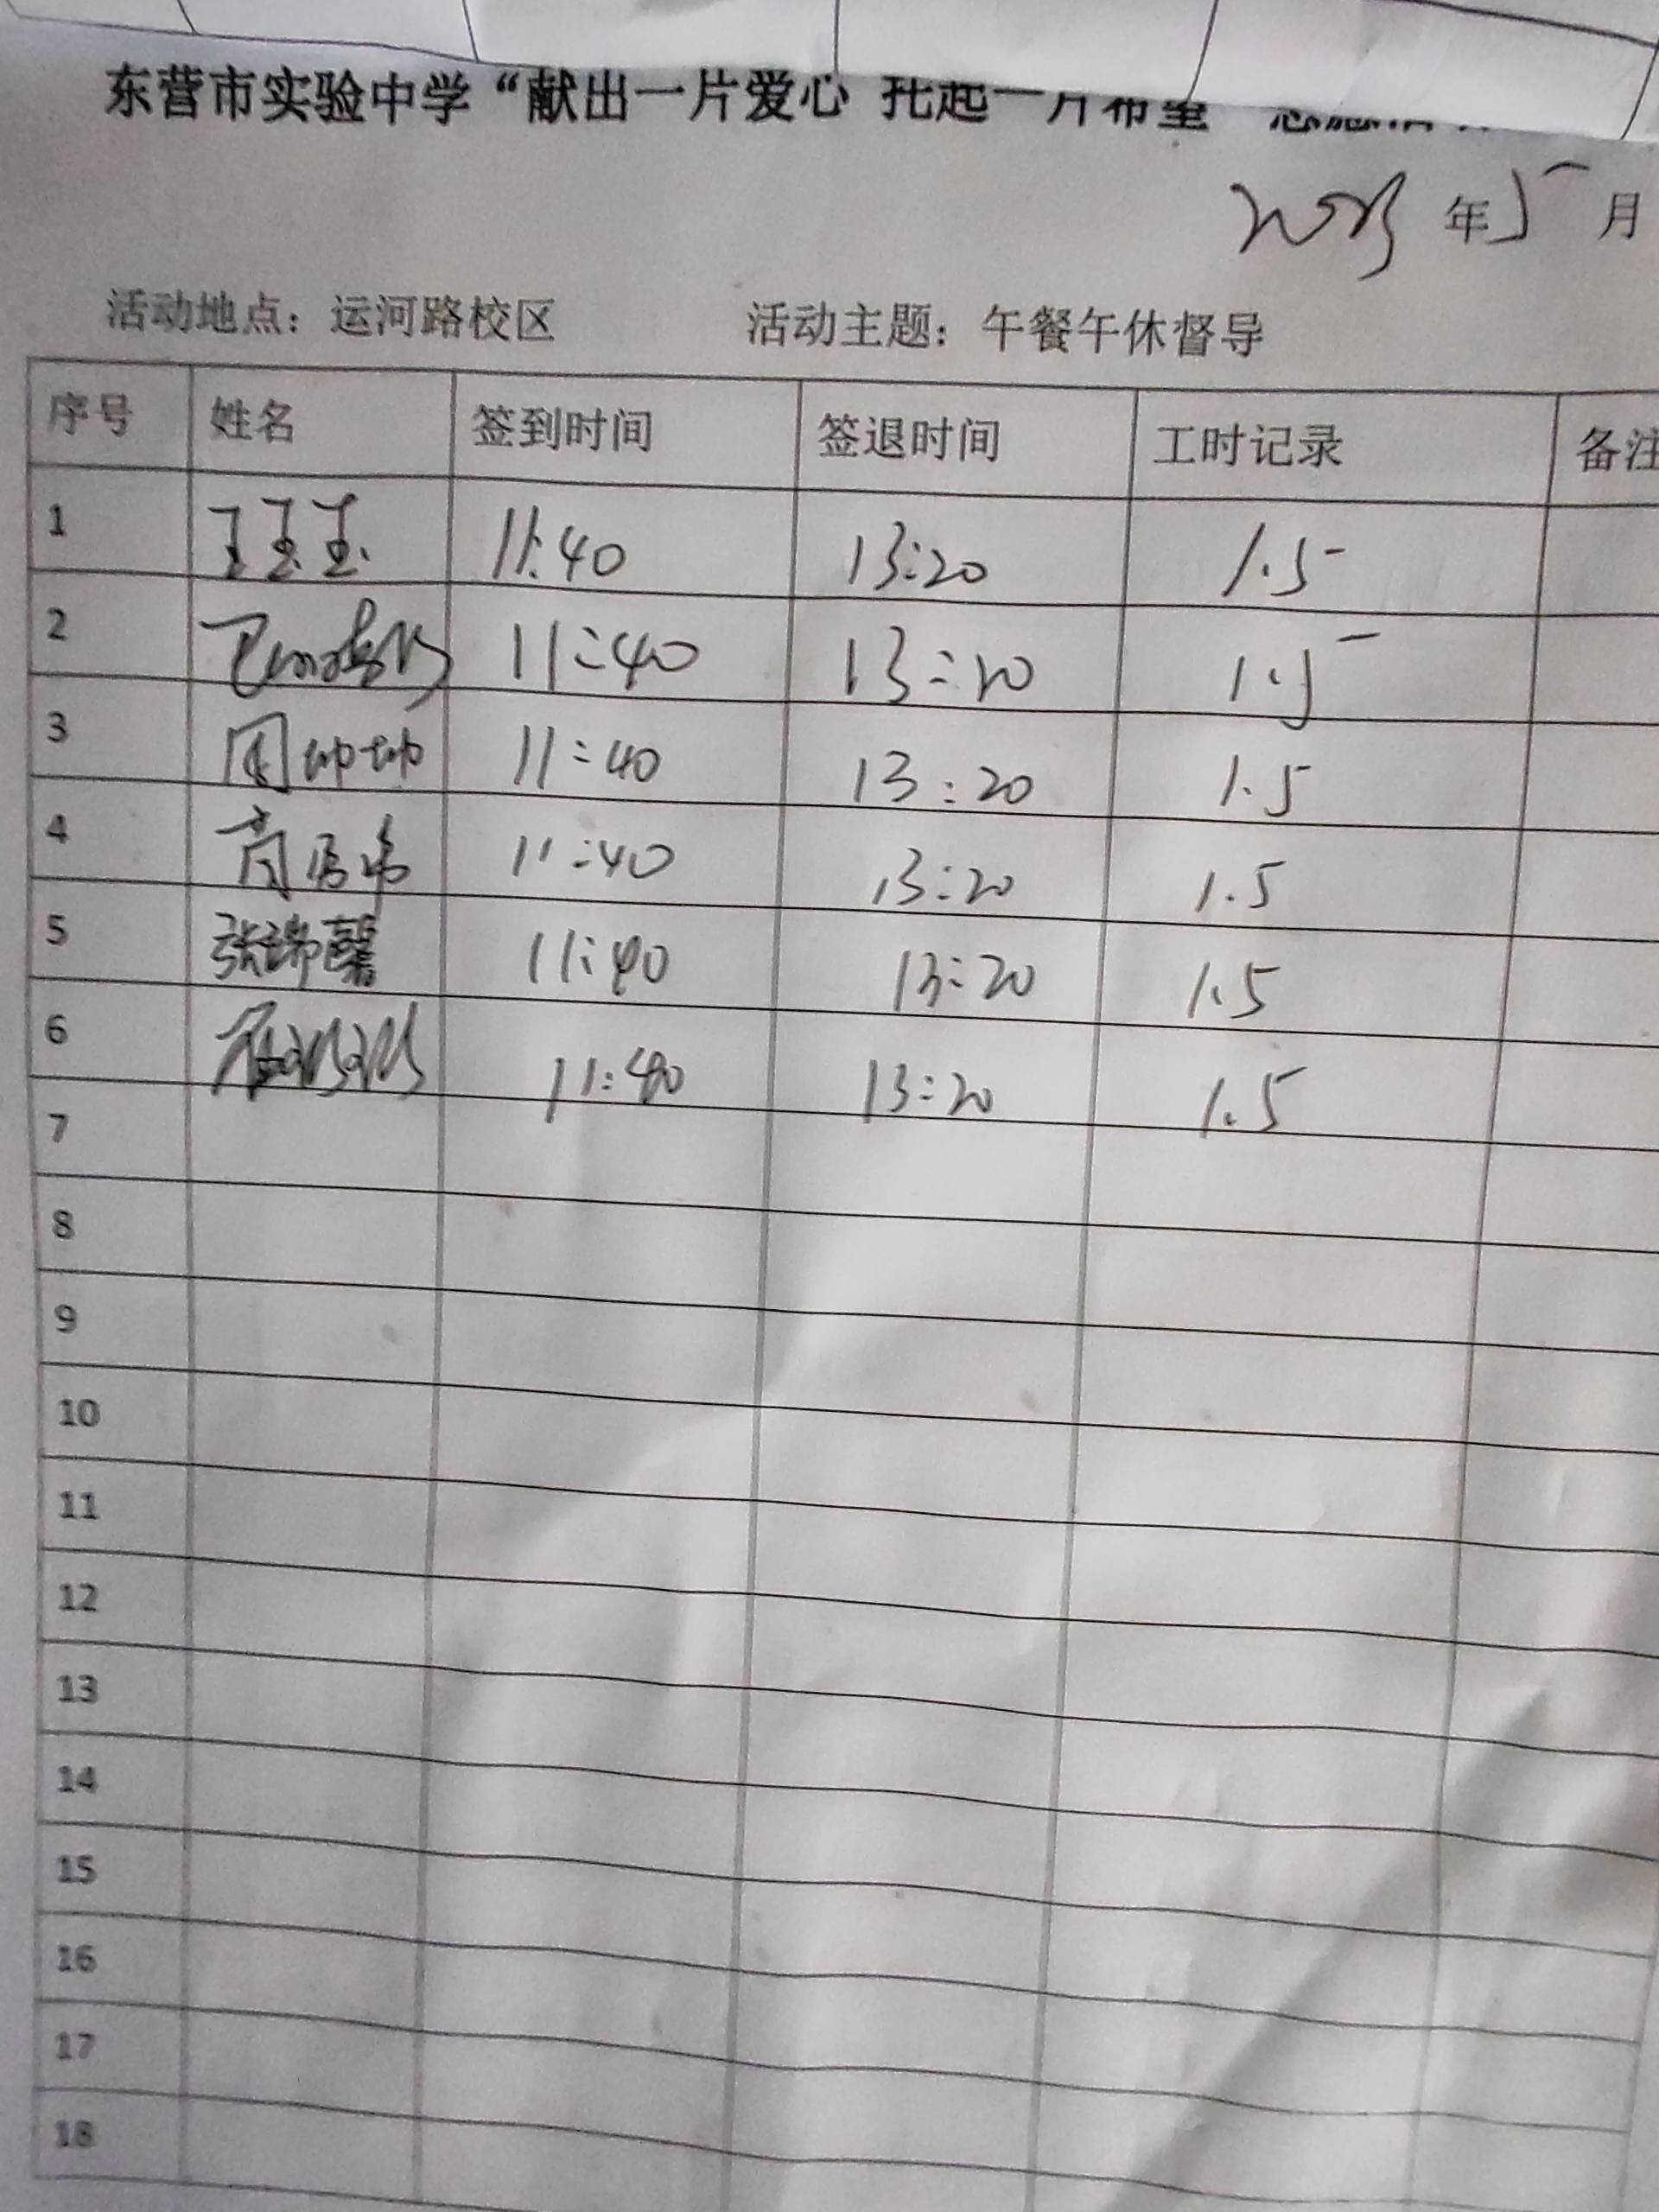 东营市实验中学“献出一片爱心 托起一片希望
2023 年 5 月
活动地点：运河路校区 活动主题：午餐午休督导
序号 姓名 签到时间 签退时间 工时记录 备注
1 王玉玉 11:40 13:20 1.5
2 11:40 13:20 1.5
3 周坤坤 11:40 13:20 1.5
4 11:40 13:20 1.5
5 张瑞馨 11:40 13:20 1.5
6 11:40 13:20 1.5
7
8
9
10
11
12
13
14
15
16
17
18